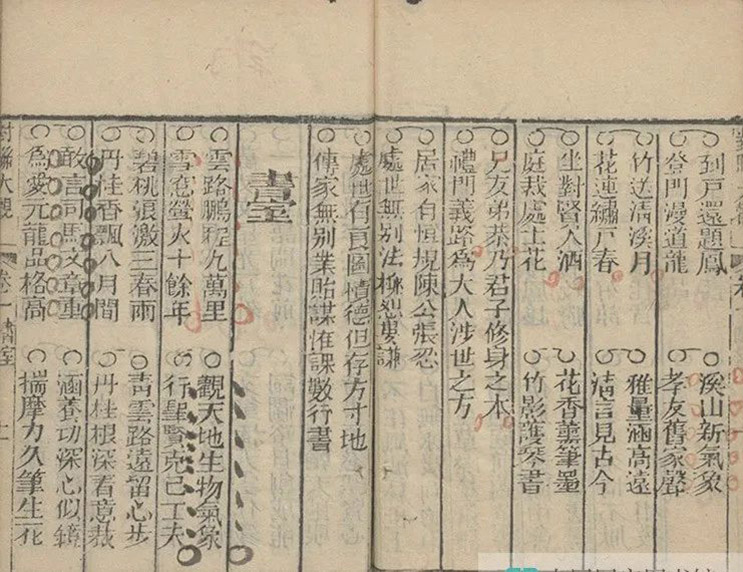 到戶還題鳳
溪山新氣象
登門漫道龍
孝友舊家聲
竹送清溪月
雅量涵高遠
花連繡戶春
清言見古今
坐對賢人酒
花香薰筆墨
庭栽處士花
竹影護琴書
兄友弟恭乃君子修身之本
禮門義路為大人涉世之方
居家自恒規陳公張忍
處世無別法柳恕婁謙
處世有良圖積德但存方寸地
傳家無別業貽謀惟課數行書
書室
雲路鵬程九萬里
觀天地生物氣象
雪窓螢火十餘年
行聖賢克己工夫
碧桃張激三春雨
靑雲路遠留心步
丹桂香飄八月間
丹桂根深着意栽
敢言司馬文章重
涵養功深心似鏡
爲愛元龍品格高
揣摩力久筆生花
對聯大觀
卷一
書室